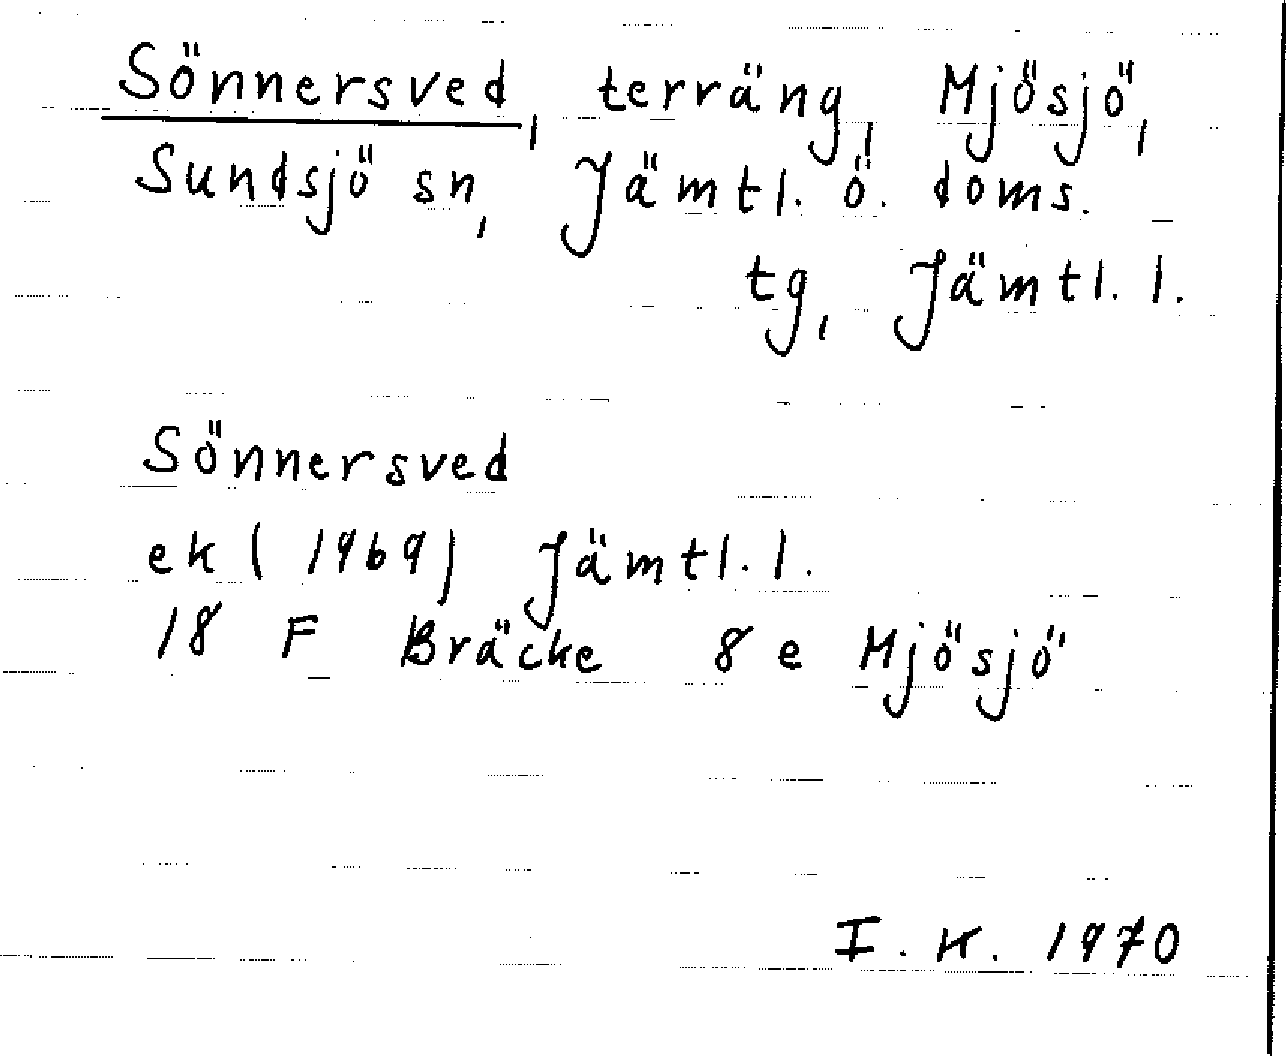 Sönnersved, terräng, Mjösjö,
Sundsjö sn, Jämtl. ö. doms.
tg, Jämtl. l.
Sönnersved
ek (1969) Jämtl. l.
18 F Bräcke 8 e Mjösjö
I. K. 1970